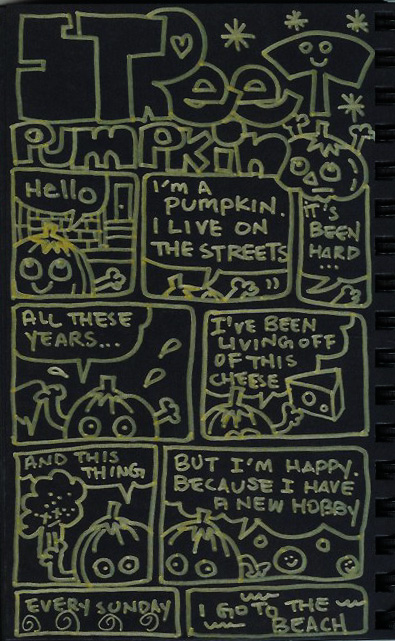 STReeT
PUMPKin
Hello
I'M A
PUMPKIN.
I LIVE ON
THE STREETS
IT'S
BEEN
HARD
...
ALL THESE
YEARS...
I'VE BEEN
LIVING OFF
OF THIS
CHEESE
AND THIS
THING
BUT I'M HAPPY.
BECAUSE I HAVE
A NEW HOBBY
EVERY SUNDAY
I GO TO THE
BEACH